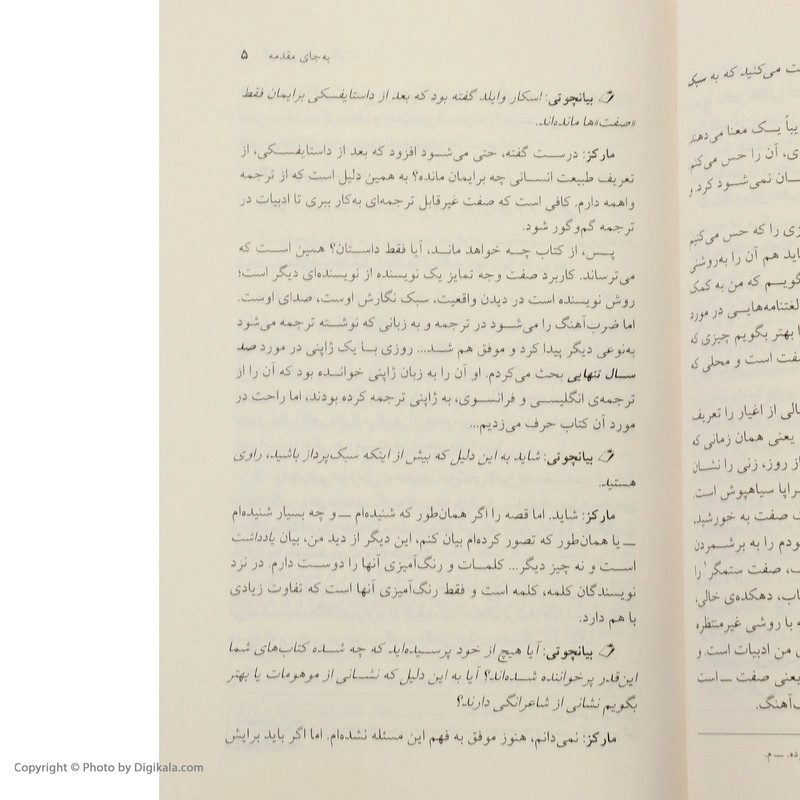 به‌جای مقدمه ۵
بیانچوتی: اسکار وایلد گفته بود که بعد از داستایفسکی برایمان فقط
«صفت»ها مانده‌اند.
مارکز: درست گفته، حتی می‌شود افزود که بعد از داستایفسکی، از
تعریف طبیعت انسانی چه برایمان مانده؟ به همین دلیل است که از ترجمه
واهمه دارم. کافی است که صفت غیرقابل ترجمه‌ای به‌کار ببری تا ادبیات در
ترجمه گم‌وگور شود.
پس، از کتاب چه خواهد ماند، آیا فقط داستان؟ همین است که
می‌ترساند. کاربرد صفت وجه تمایز یک نویسنده از نویسنده‌ای دیگر است؛
روش نویسنده است در دیدن واقعیت، سبک نگارش اوست، صدای اوست.
اما ضرب‌آهنگ را می‌شود در ترجمه و به زبانی که نوشته ترجمه می‌شود
به‌نوعی دیگر پیدا کرد و موفق هم شد... روزی با یک ژاپنی در مورد صد
سال تنهایی بحث می‌کردم. او آن را به زبان ژاپنی خوانده بود که آن را از
ترجمه‌ی انگلیسی و فرانسوی، به ژاپنی ترجمه کرده بودند، اما راحت در
مورد آن کتاب حرف می‌زدیم...
بیانچوتی: شاید به این دلیل که بیش از اینکه سبک‌پرداز باشید، راوی
هستید.
مارکز: شاید. اما قصه را اگر همان‌طور که شنیده‌ام ــ و چه بسیار شنیده‌ام
ــ یا همان‌طور که تصور کرده‌ام بیان کنم، این دیگر از دید من، بیان یادداشت
است و نه چیز دیگر... کلمات و رنگ‌آمیزی آنها را دوست دارم. در نزد
نویسندگان کلمه، کلمه است و فقط رنگ‌آمیزی آنها است که تفاوت زیادی
با هم دارد.
بیانچوتی: آیا هیچ از خود پرسیده‌اید که چه شده کتاب‌های شما
این‌قدر پرخواننده شده‌اند؟ آیا به این دلیل که نشانی از موهومات یا بهتر
بگویم نشانی از شاعرانگی دارند؟
مارکز: نمی‌دانم، هنوز موفق به فهم این مسئله نشده‌ام. اما اگر باید برایش
می‌کنید که به سبک
یک معنا می‌دهند
آن را حس می‌کنم
نمی‌شود کرد. و
را که حس می‌کنیم
هم آن را به‌روشنی
که من به کمک
لغتنامه‌هایی در مورد
بهتر بگویم چیزی که
است و محلی که
از اغیار را تعریف
یعنی همان زمانی که
از روز، زنی را نشان
سراپا سیاهپوش است.
صفت به خورشید،
را به برشمردن
صفت ستمگر۱ را
دهکده‌ی خالی،
با روشی غیرمنتظره
من ادبیات است. و
یعنی صفت ــ است
ــ م.
Copyright © Photo by Digikala.com